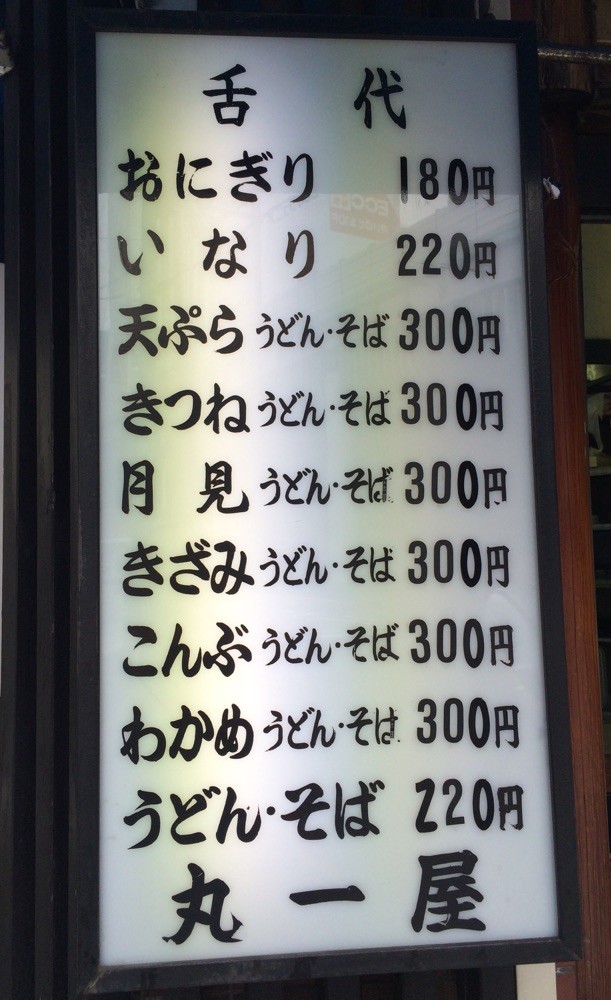 舌代
おにぎり 180円
いなり 220円
天ぷらうどん・そば 300円
きつねうどん・そば 300円
月見うどん・そば 300円
きざみうどん・そば 300円
こんぶうどん・そば 300円
わかめうどん・そば 300円
うどん・そば 220円
丸一屋